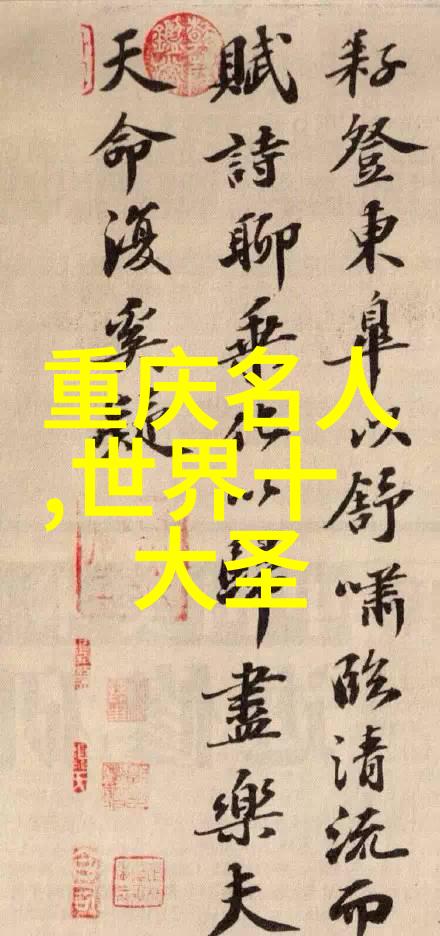 耔登東皐以舒嘯臨清流而
賦詩聊乗化以歸盡樂夫
天命復奚疑
重庆名人
,世界十
大圣